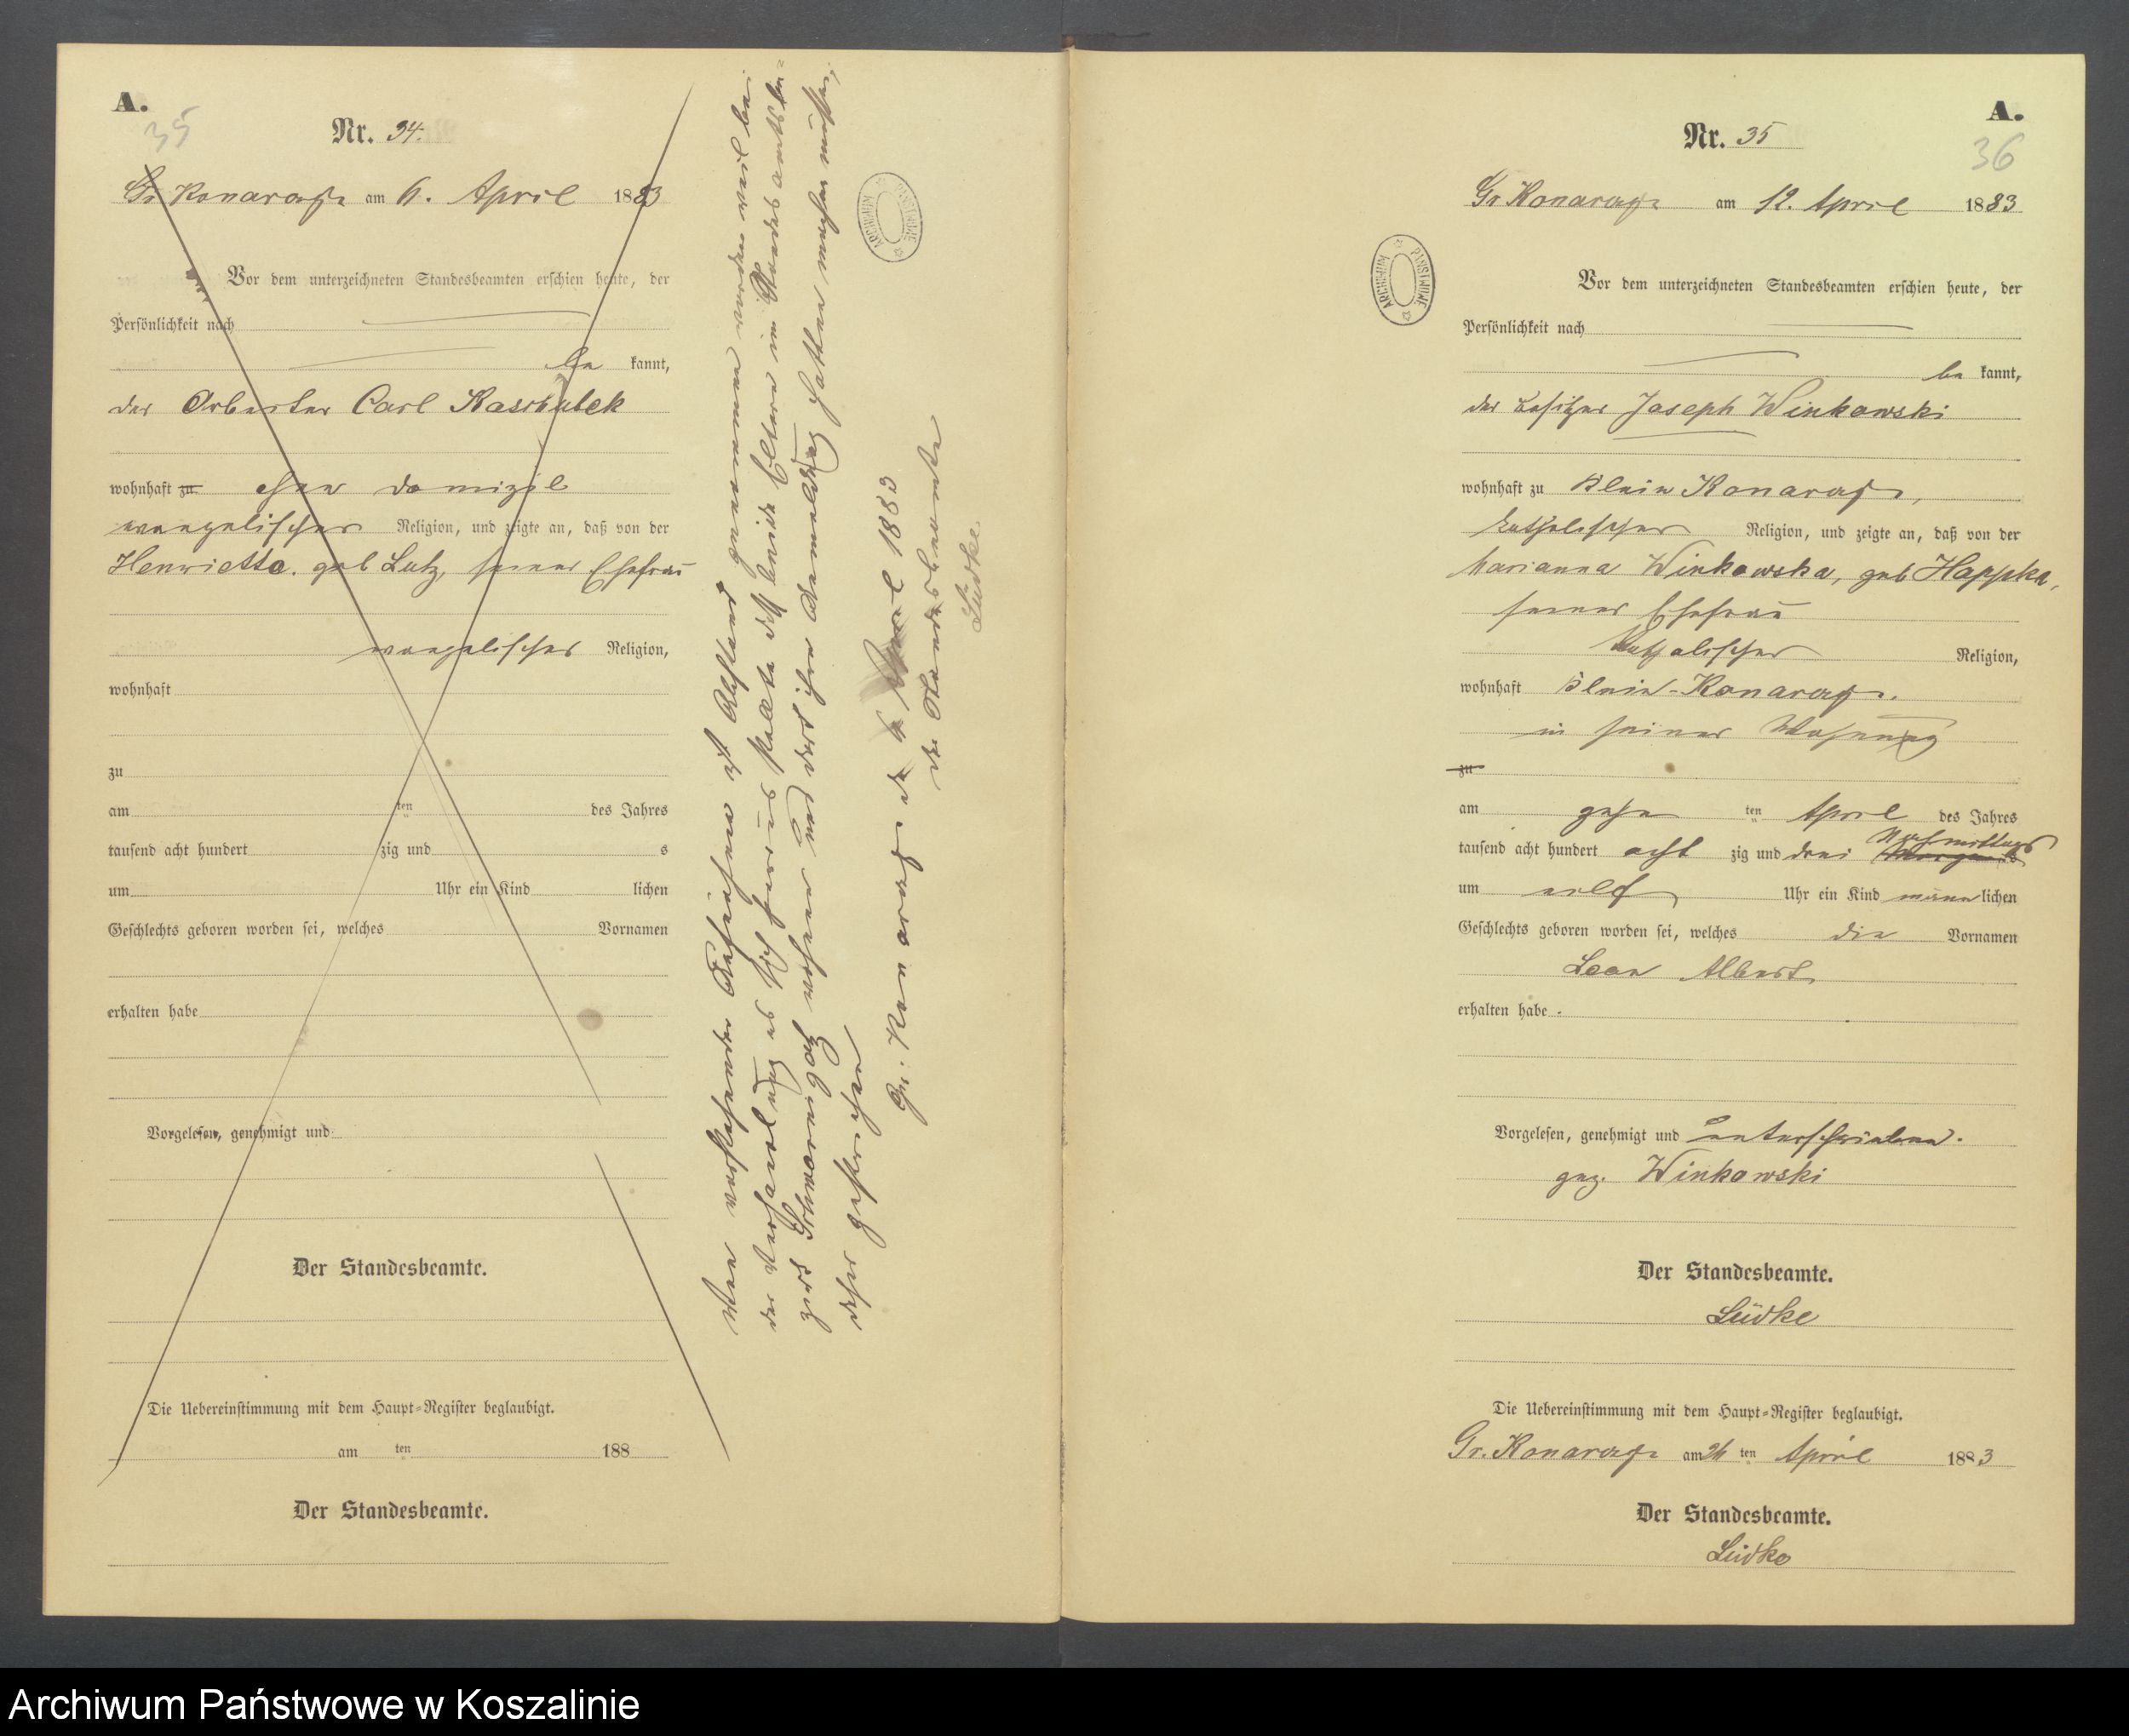 A.
35
Nr. 34.
Gr. Konarczyn am 6. April 1883
Vor dem unterzeichneten Standesbeamten erschien heute, der
Persönlichkeit nach
be kannt,
der Arbeiter Carl
wohnhaft zu ohne Domizil
evangelischer Religion, und zeigte an, daß von der
Henriette geb Lutz, seiner Ehefrau
evangelischer Religion,
wohnhaft
zu
am ten des Jahres
tausend acht hundert zig und s
um Uhr ein Kind lichen
Geschlechts geboren worden sei, welches Vornamen
erhalten habe
Vorgelesen, genehmigt und
Der Standesbeamte.
Die Uebereinstimmung mit dem Haupt-Register beglaubigt.
am ten 188
Der Standesbeamte.
Von vorstehender ist Abstand genommen worden weil bei
der Verhandlung es sich heraus stellte daß beide Eltern im Standesamtsbe-
zirk wohnen und dort ihre Anmeldung hatten machen müssen,
daher gestrichen
Gr. Konarczyn de 6 April 1883
der Standesbeamte
Lüdke
ARCHIWUM PAŃSTWOWE
A.
36
Nr. 35
Gr Konarczyn am 12. April 1883
ARCHIWUM PAŃSTWOWE
Vor dem unterzeichneten Standesbeamten erschien heute, der
Persönlichkeit nach
be kannt,
der Besitzer Joseph Winkowski
wohnhaft zu Klein Konarczyn,
katholischer Religion, und zeigte an, daß von der
Marianna Winkowska, geb Happka,
seiner Ehefrau
katholischer Religion,
wohnhaft Klein-Konarczyn.
in seiner Wohnung
zu
am zehn ten April des Jahres
tausend acht hundert acht zig und drei Nachmittags
um elf Uhr ein Kind männlichen
Geschlechts geboren worden sei, welches die Vornamen
Leon Albert
erhalten habe.
Vorgelesen, genehmigt und unterschrieben.
gez. Winkowski
Der Standesbeamte.
Lüdke
Die Uebereinstimmung mit dem Haupt-Register beglaubigt.
Gr. Konarczyn am ten April 1883
Der Standesbeamte.
Lüdke
Archiwum Państwowe w Koszalinie